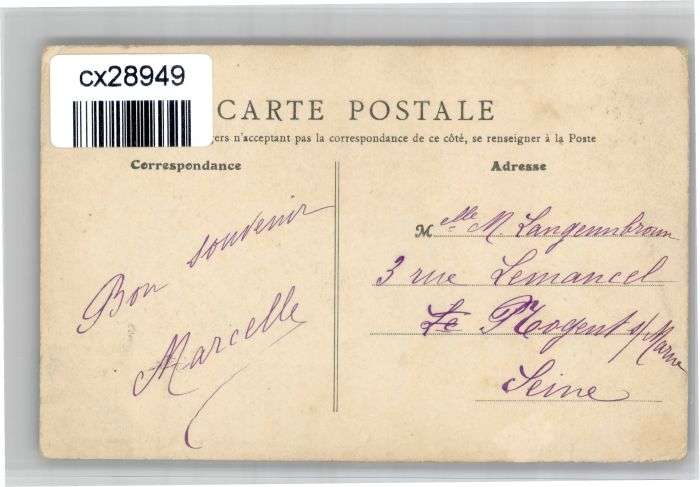 cx28949
CARTE POSTALE
gers n'acceptant pas la correspondance de ce côté, se renseigner à la Poste
Correspondance
Bon souvenir
Marcelle
Adresse
Melle M. Langennbronn
3 rue Lemancel
Le Nogent s/Marne
Seine